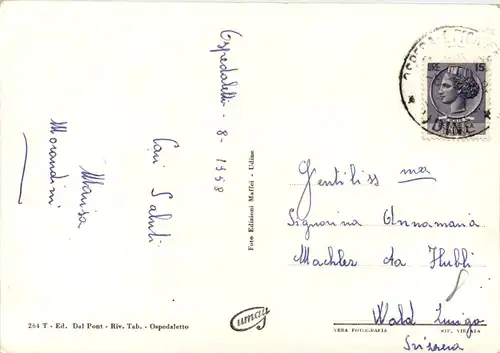 Ospedaletti - 8 - 1958
Cari Saluti
Marisa
Morandini
Foto Edizioni Maffei - Udine
LIRE 15
UDINE
Gentiliss ma
Signorina Annamaria
Machler da Hubli
Wald Zurigo
Svizzera
264 T - Ed. Dal Pont - Riv. Tab. - Ospedaletto
VERA FOTOGRAFIA
RIP. VIETATA